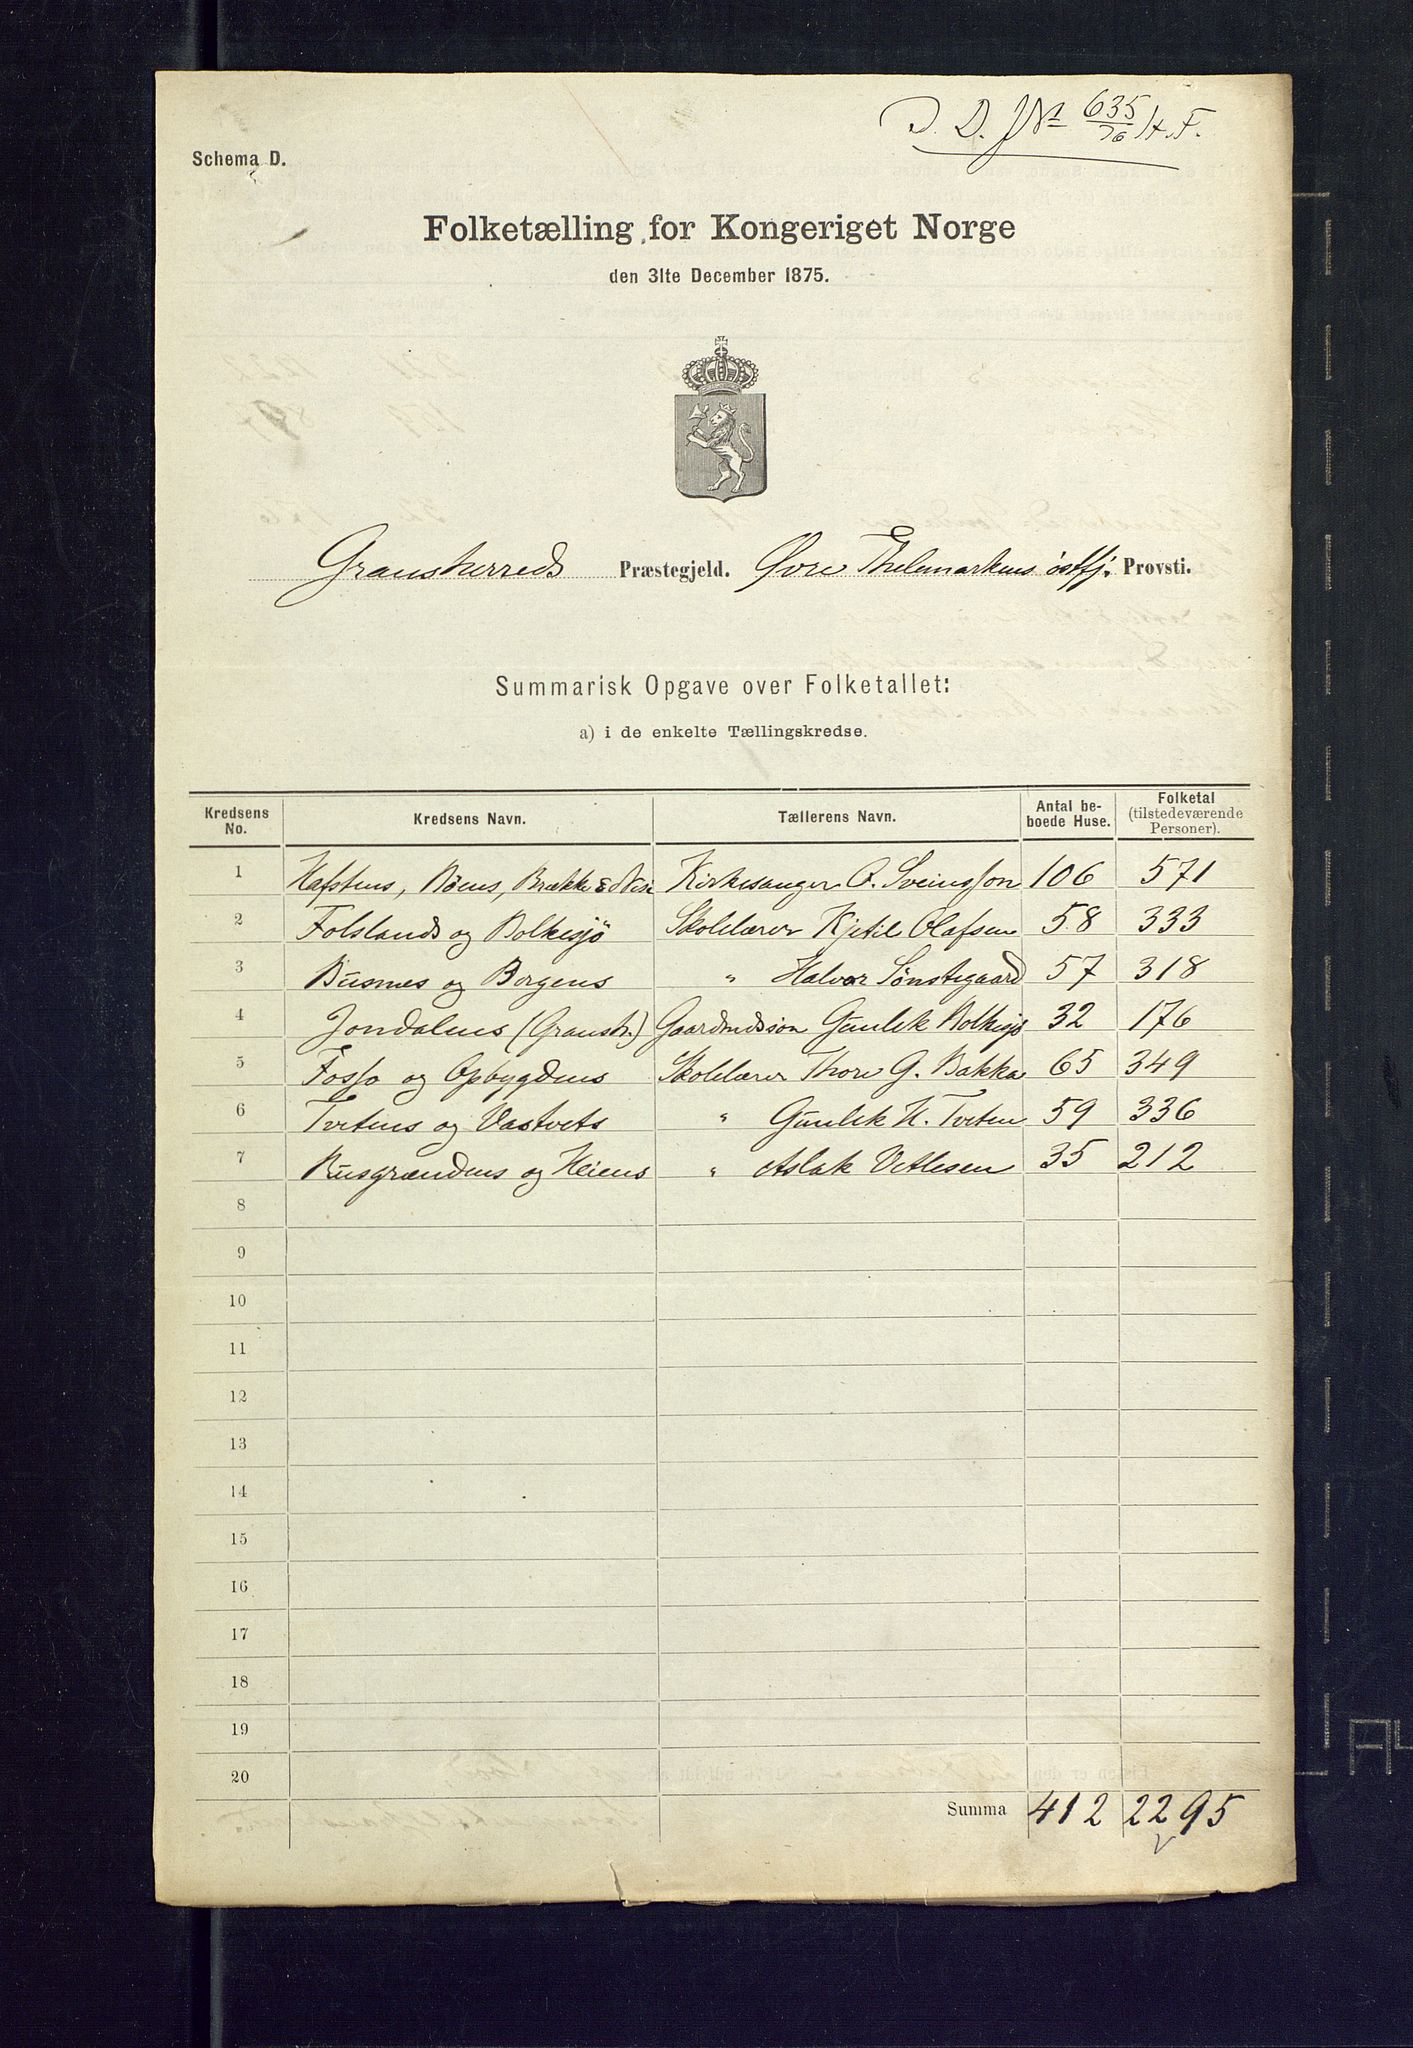 D. D. JNr 635/76 H. F.
Schema D.
Folketælling for Kongeriget Norge
den 31te December 1875.
Gransherreds Præstegjeld. Øvre Thelemarkens østfj. Provsti.
Summarisk Opgave over Folketallet:
a) i de enkelte Tællingskredse.
Kredsens No. Kredsens Navn. Tællerens Navn. Antal beboede Huse. Folketal (tilstedeværende Personer).
1 Hafstens, Böens, Brække & Kirkesanger O. Sveinsson 106 571
2 Folslands og Bolkesjö Skolelærer Kjetil Olafsen 58 333
3 Busnes og Borgens " Halvor Sønstegaard 57 318
4 Jondalens (Gransh.) Gaardmdssön Gunlek Bolkesjö 32 176
5 Fosso og Opbygdens Skolelærer Thore G. Bakka 65 349
6 Tveitens og Vaatvets " Gunlek H. Tveten 59 336
7 Busgrændens og Heiens " Aslak Vetlesen 35 212
8
9
10
11
12
13
14
15
16
17
18
19
20
Summa 412 2295